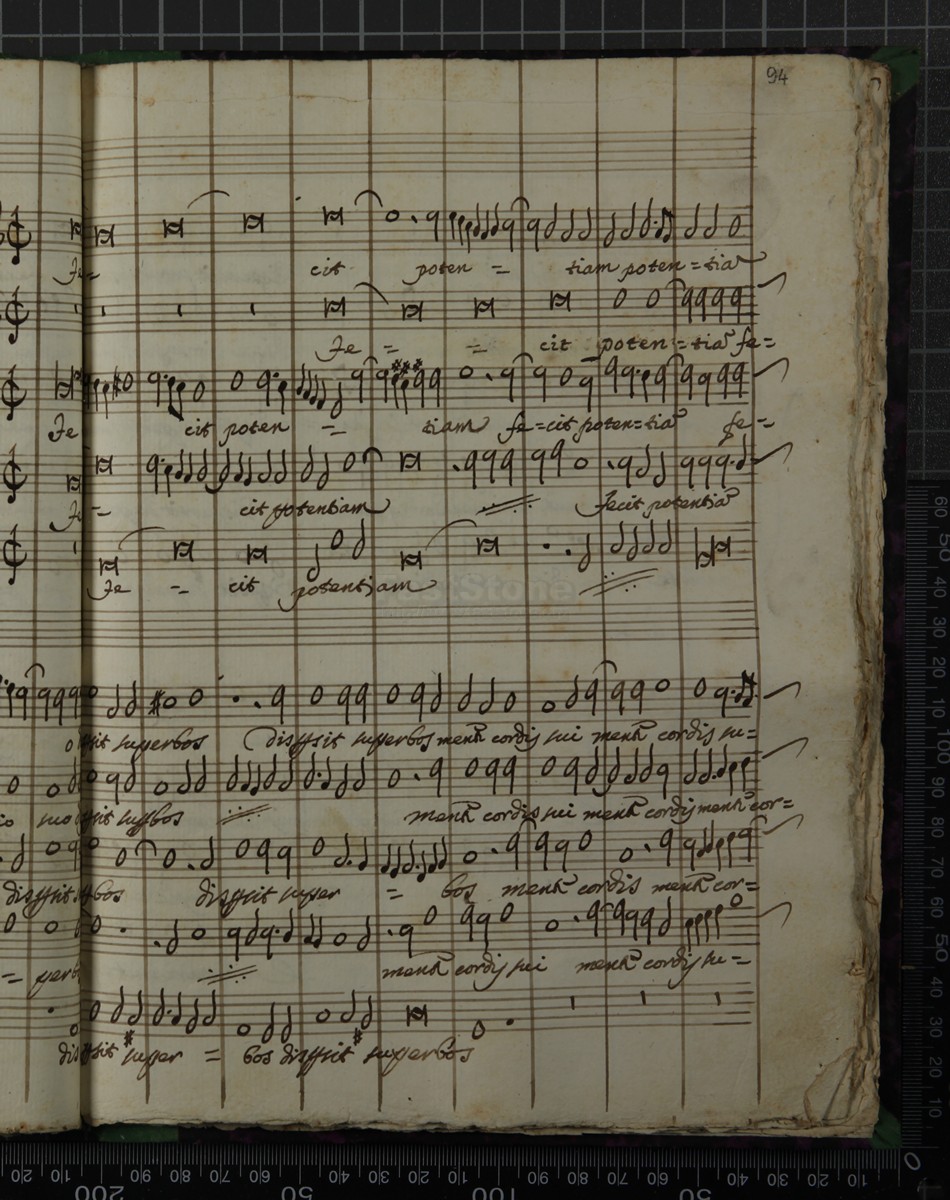 94
Fe= cit poten = tiam poten=tiã
Fe = = cit poten=tiã fe=
Fe cit poten = tiam fe=cit poten=tiã fe=
Fe = cit potentiam fecit potentiã
Fe = cit potentiam
sit superbos dispersit superbos mentẽ cordis sui mentẽ cordis su=
sit superbos mentẽ cordis sui mentẽ cordis mentẽ cor=
dispersit bos dispersit super = bos mentẽ cordis mentẽ cor=
= mentẽ cordis sui mentẽ cordis su=
dispersit super = bos dispersit superbos
60 50 40 30 20 10 100 90 80 70 60 50 40 30 20 10
20 10 200 90 80 70 60 50 40 30 20 10 100 90 80 70 60 50 40 30 20 10 0